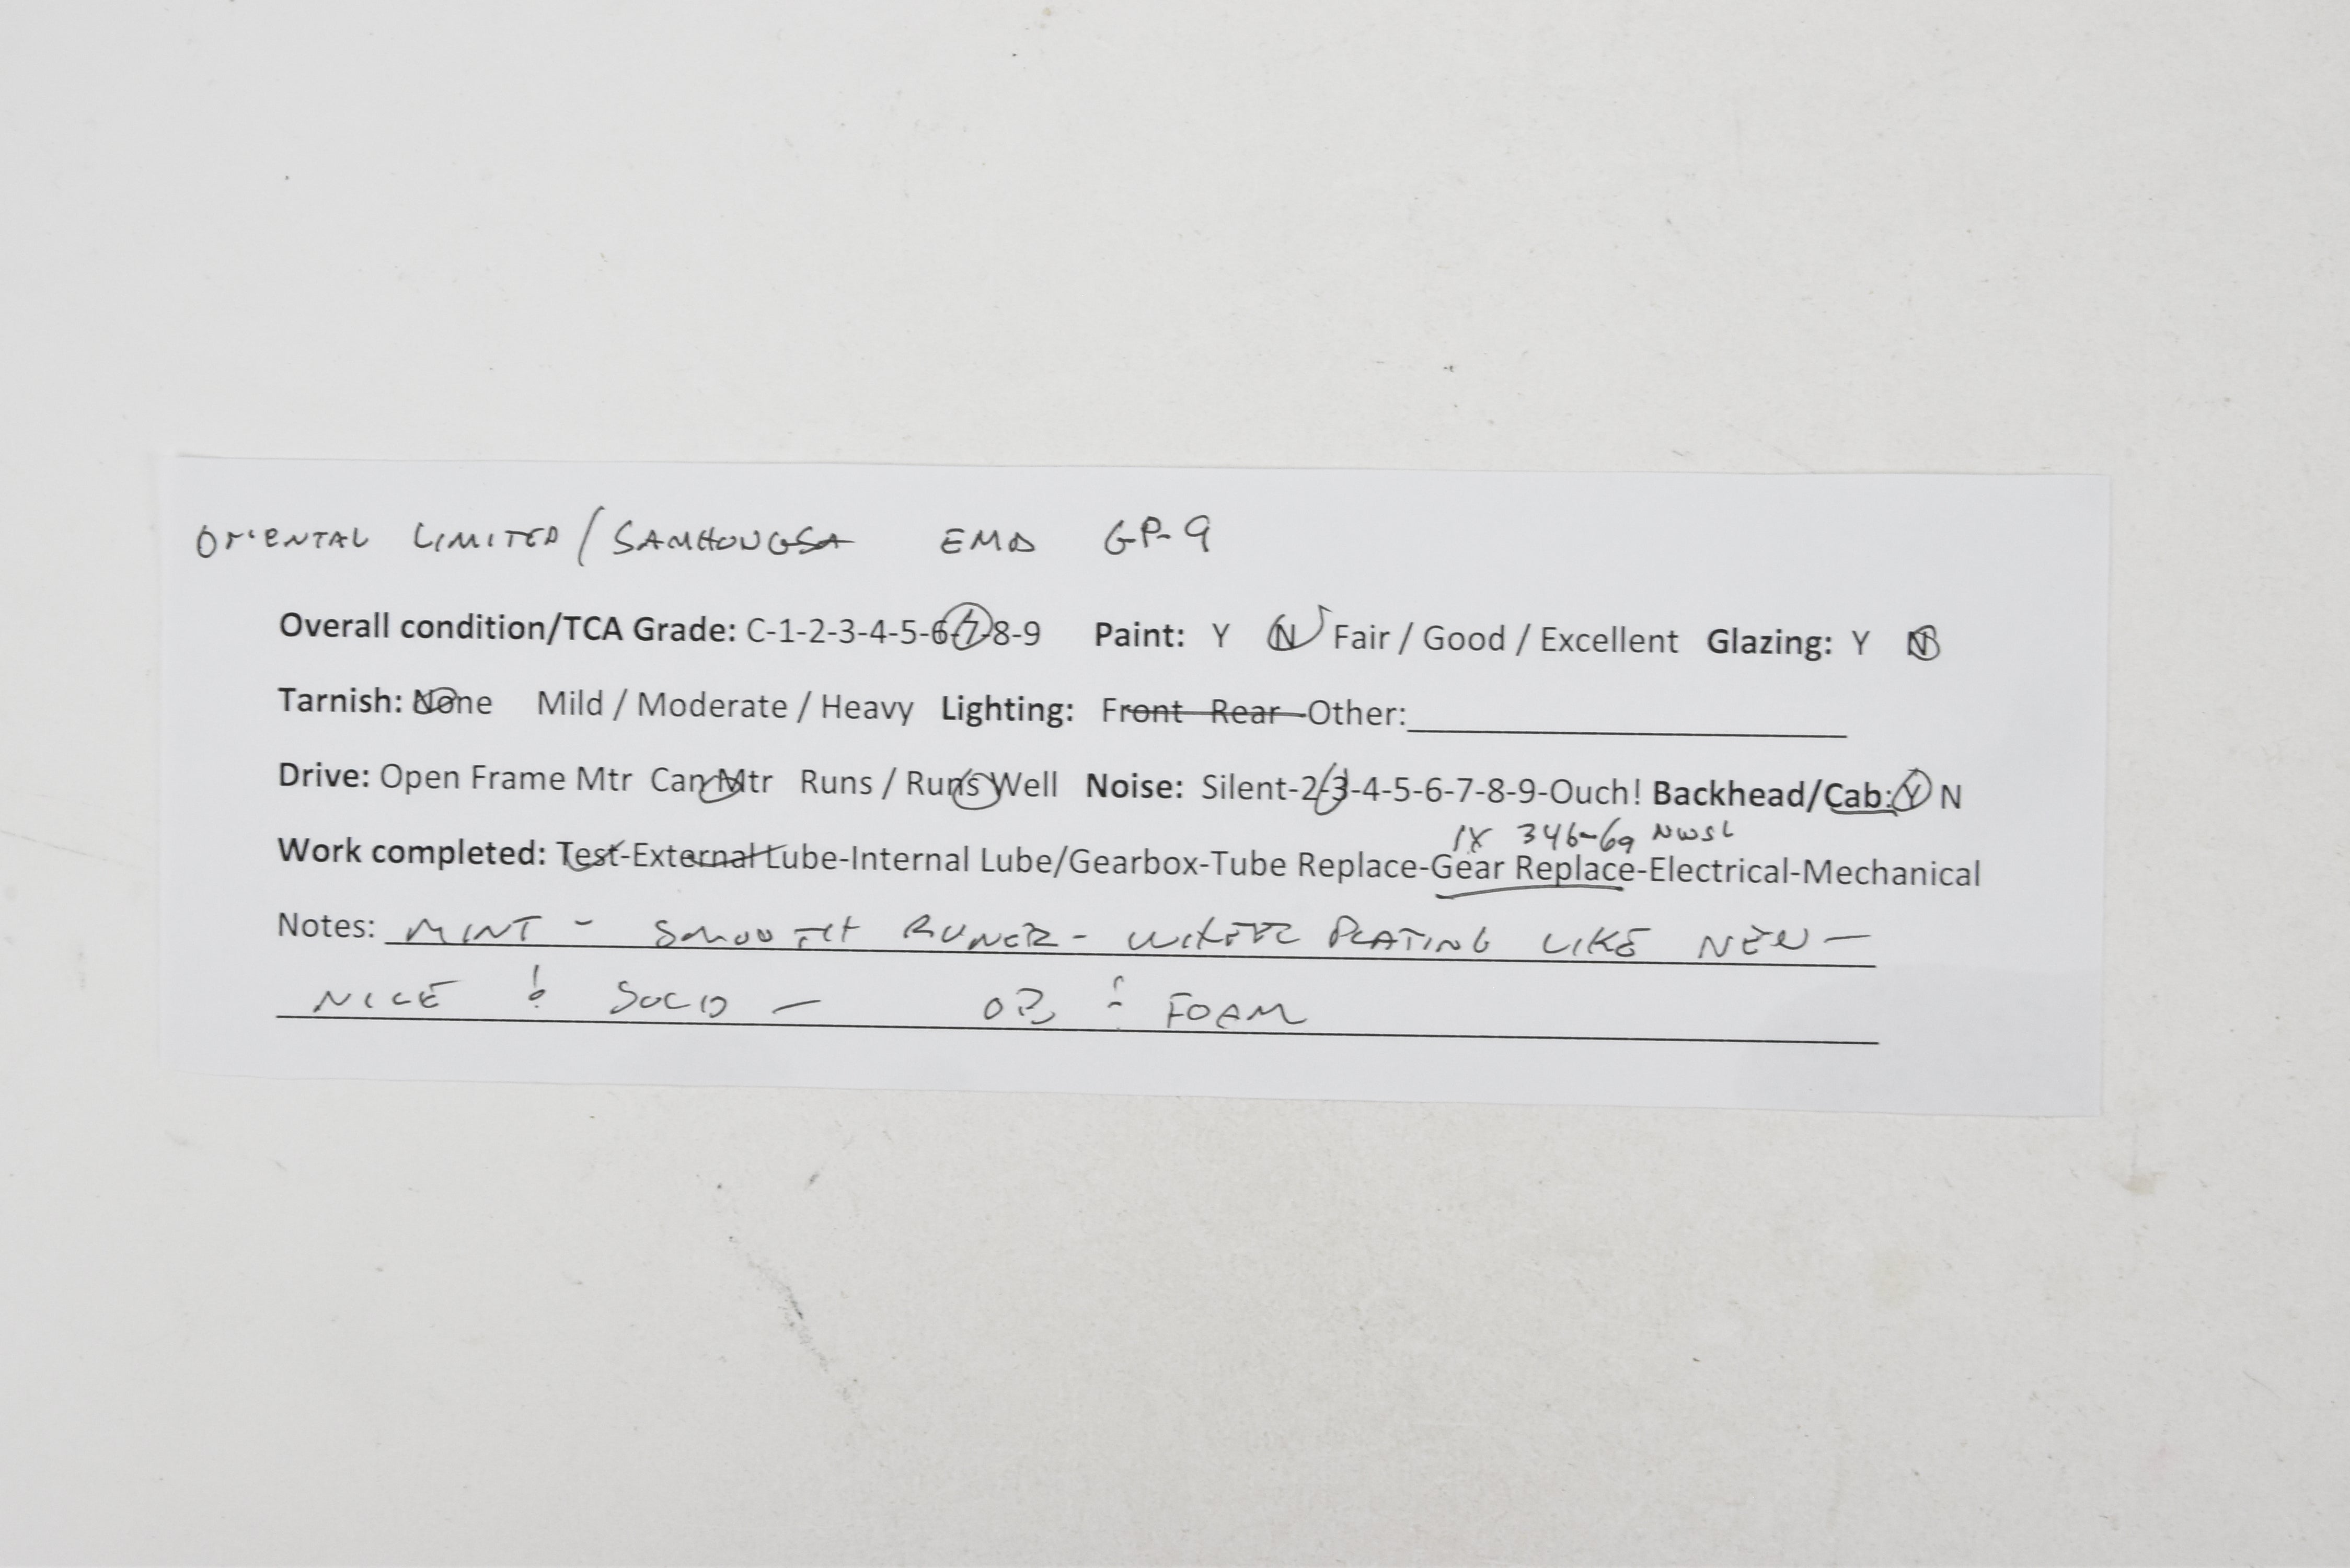 ORIENTAL LIMITED / SAMHONGSA EMD GP-9
Overall condition/TCA Grade: C-1-2-3-4-5-6-7-8-9 Paint: Y N Fair / Good / Excellent Glazing: Y N
Tarnish: None Mild / Moderate / Heavy Lighting: Front Rear Other:
Drive: Open Frame Mtr Can Mtr Runs / Runs Well Noise: Silent-2-3-4-5-6-7-8-9-Ouch! Backhead/Cab: Y N
1X 346-69 NWSL
Work completed: Test-External Lube-Internal Lube/Gearbox-Tube Replace-Gear Replace-Electrical-Mechanical
Notes: MINT - SMOOTH RUNER - PLATING LIKE NEW -
NICE & SOLID - OB & FOAM